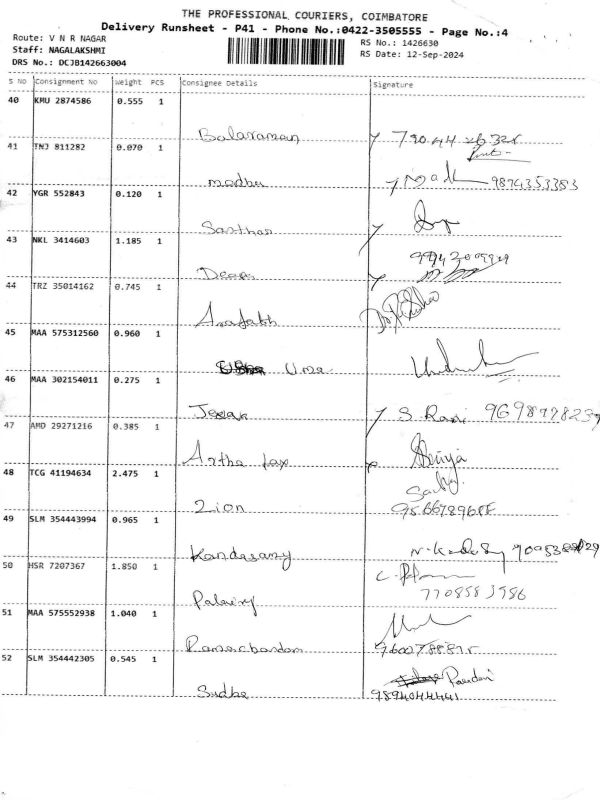 THE PROFESSIONAL COURIERS, COIMBATORE
Delivery Runsheet - P41 - Phone No.:0422-3505555 - Page No.:4
Route: V N R NAGAR
Staff: NAGALAKSHMI
DRS No.: DCJB142663004
RS No.: 1426630
RS Date: 12-Sep-2024
S No Consignment No Weight PCS Consignee Details Signature
40 KMU 2874586 0.555 1
Balaraman
41 TNJ 811282 0.070 1
madhu 9894353383
42 YGR 552843 0.120 1
Santhan
43 NKL 3414603 1.185 1
Deepa
44 TRZ 35014162 0.745 1
Arafath
45 MAA 575312560 0.960 1
Uma
46 MAA 302154011 0.275 1
Jeeak S Rani
47 AMD 29271216 0.385 1
Artha fax
48 TCG 41194634 2.475 1
Zion
49 SLM 354443994 0.965 1
Kandasamy
50 HSR 7207367 1.850 1
7708583986
51 MAA 575552938 1.040 1
Ramachandan
52 SLM 354442305 0.545 1
Sudha 9894044441